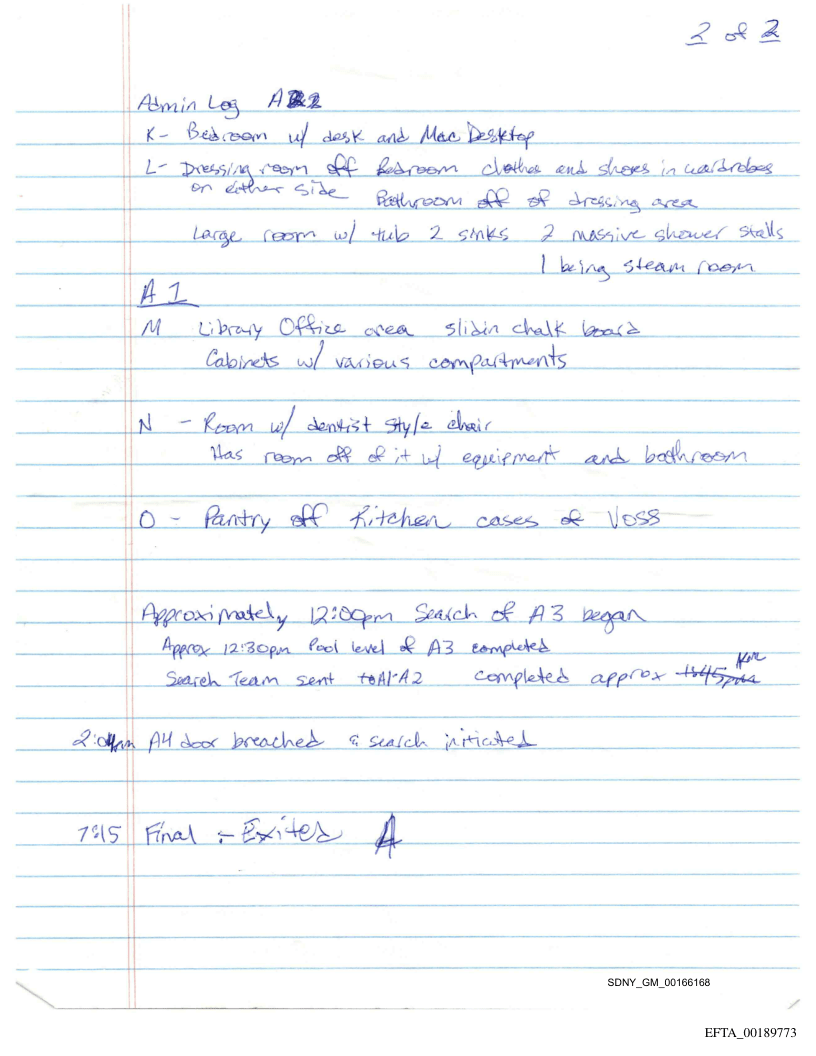 2 of 2
Admin Log A2
K - Bedroom w/ desk and Mac Desktop
L - Dressing room off Bedroom clothes and shoes in wardrobes
on either side Bathroom off of dressing area
Large room w/ tub 2 sinks 2 massive shower stalls
1 being steam room
A 1
M Library Office area slidin chalk board
Cabinets w/ various compartments
N - Room w/ dentist style chair
Has room off of it w/ equipment and bathroom
O - Pantry off Kitchen cases of VOSS
Approximately 12:00pm Search of A3 began
Approx 12:30pm Pool level of A3 completed
Search Team sent to A1-A2 completed approx
2:04pm A4 door breached & search initiated
7:15 Final - Exited A
SDNY_GM_00166168
EFTA_00189773